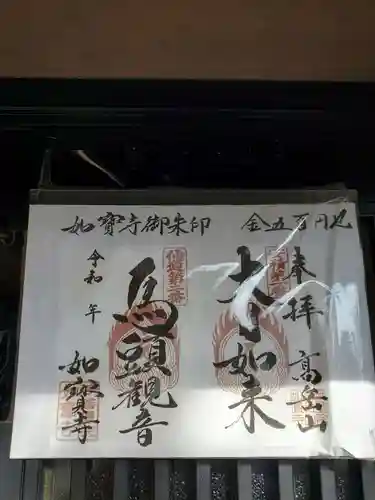 如寳寺御朱印 金五百円也
奉拝 高岳山
大日如来
馬頭観音
令和 年 如寳寺